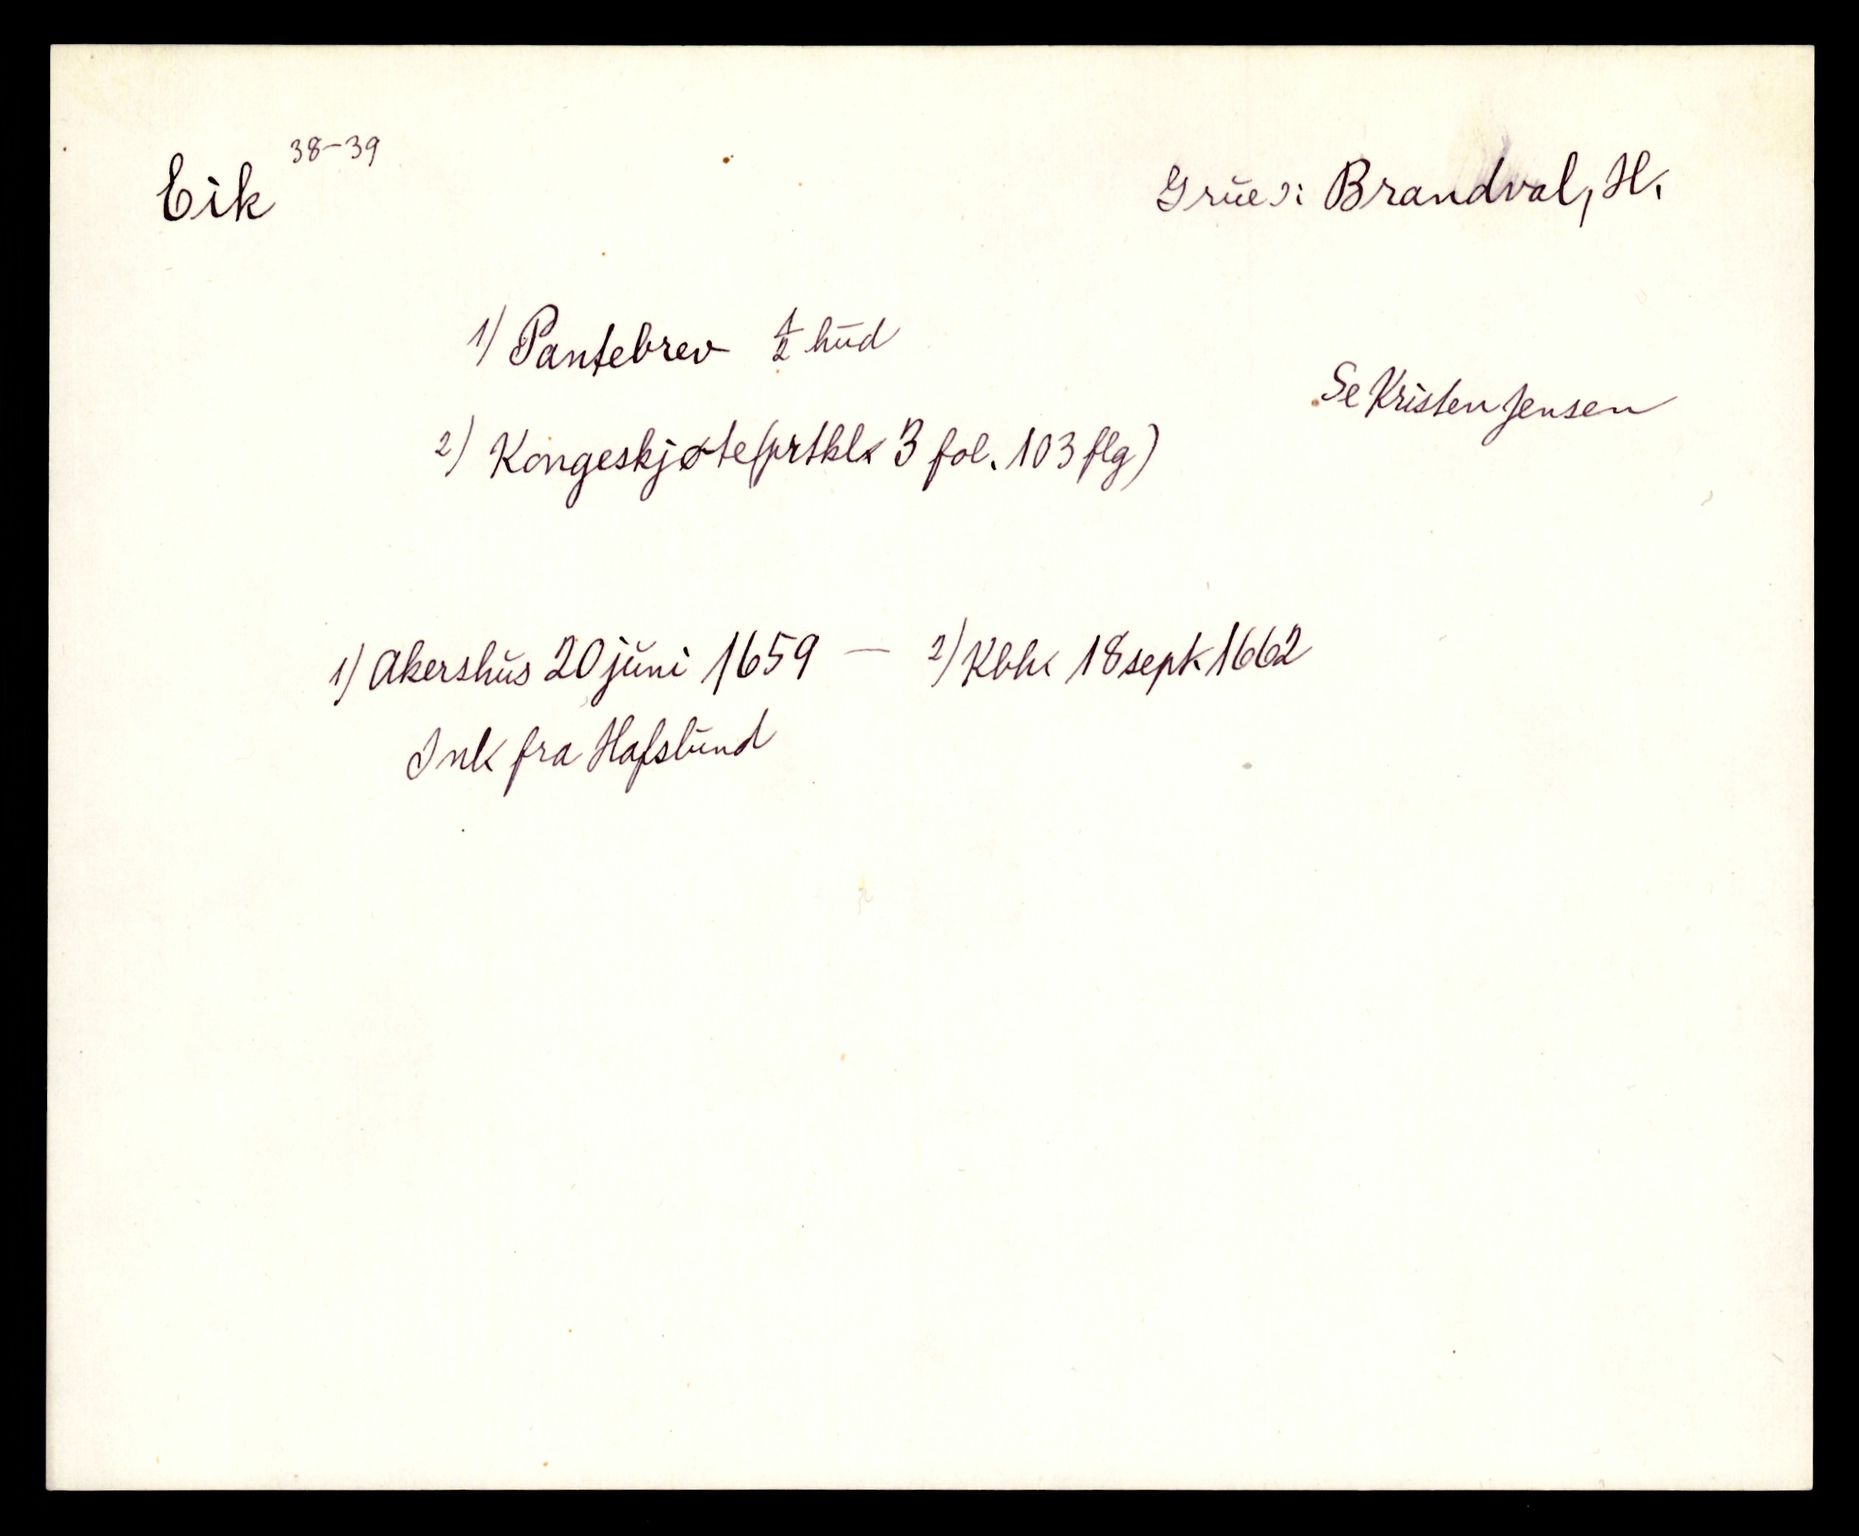 Eik 38-39
Grue ɔ: Brandval, H.
1) Pantebrev 1/2 hud
Se Kristen Jensen
2) Kongeskjøte (prtkl. 3 fol. 103 flg)
1) Akershus 20 juni 1659 — 2) Kbh. 18 sept. 1662
Ink fra Hafslund